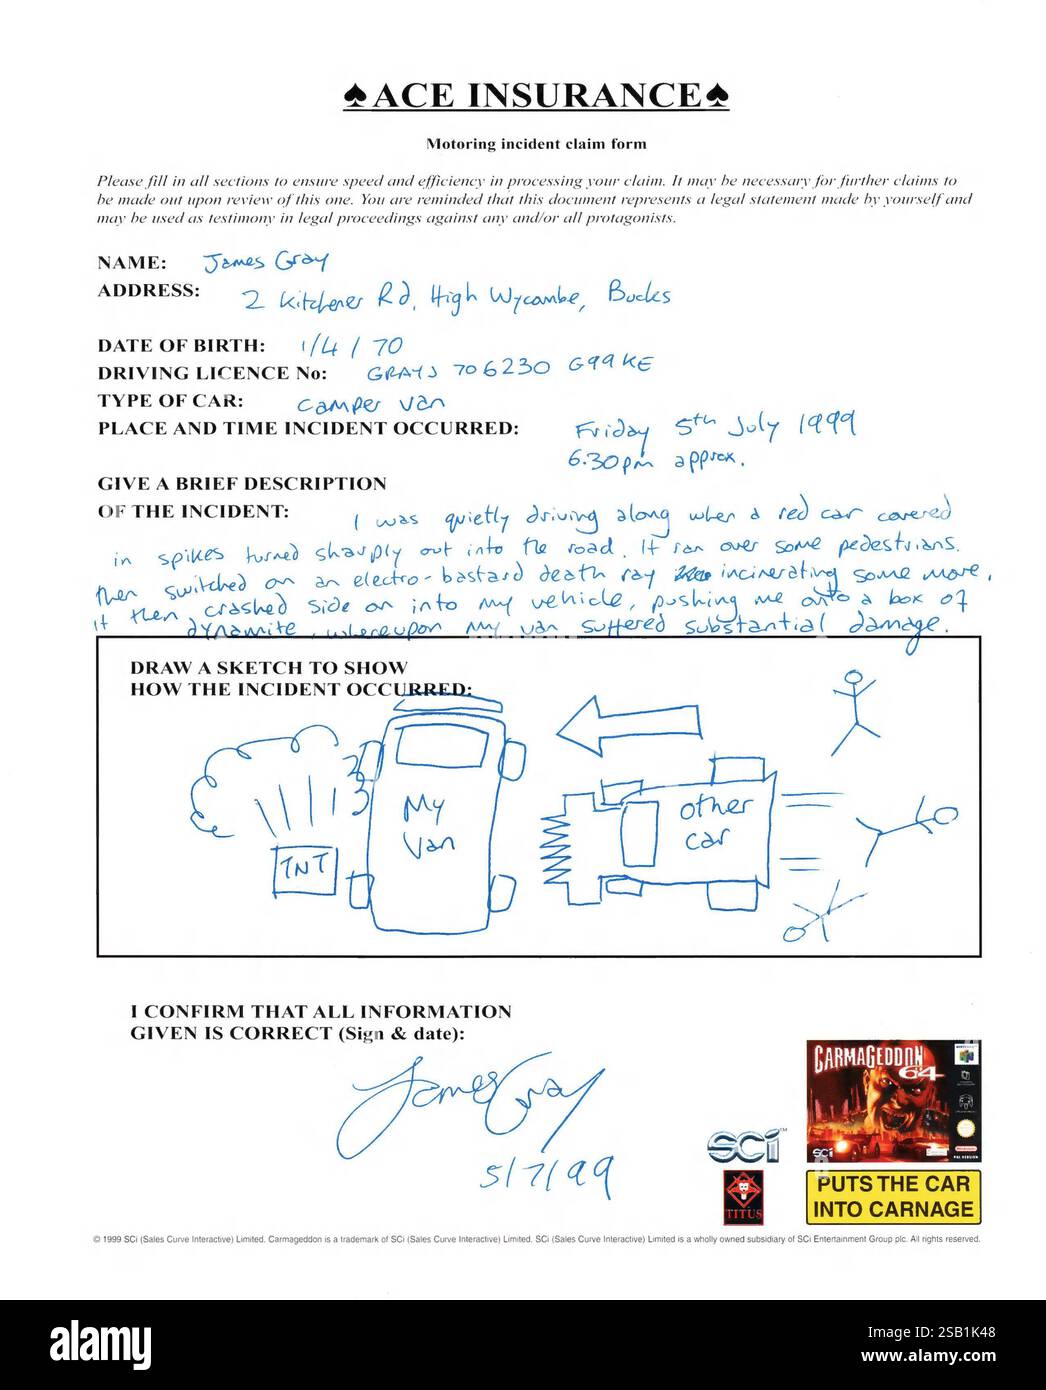 ♠ACE INSURANCE♠
Motoring incident claim form
Please fill in all sections to ensure speed and efficiency in processing your claim. It may be necessary for further claims to
be made out upon review of this one. You are reminded that this document represents a legal statement made by yourself and
may be used as testimony in legal proceedings against any and/or all protagonists.
NAME: James Gray
ADDRESS: 2 Kitchener Rd, High Wycombe, Bucks
DATE OF BIRTH: 1/4/70
DRIVING LICENCE No: GRAYJ 706230 G99KE
TYPE OF CAR: camper van
PLACE AND TIME INCIDENT OCCURRED: Friday 5th July 1999
6.30pm approx.
GIVE A BRIEF DESCRIPTION
OF THE INCIDENT: I was quietly driving along when a red car covered
in spikes turned sharply out into the road. It ran over some pedestrians.
then switched on an electro-bastard death ray incinerating some more,
it then crashed side on into my vehicle, pushing me onto a box of
dynamite, whereupon my van suffered substantial damage.
DRAW A SKETCH TO SHOW
HOW THE INCIDENT OCCURRED:
My
Van
other
car
TNT
I CONFIRM THAT ALL INFORMATION
GIVEN IS CORRECT (Sign & date):
James Gray
5/7/99
CARMAGEDDON
64
SCi
PAL VERSION
SCi™
TITUS
PUTS THE CAR
INTO CARNAGE
© 1999 SCi (Sales Curve Interactive) Limited. Carmageddon is a trademark of SCi (Sales Curve Interactive) Limited. SCi (Sales Curve Interactive) Limited is a wholly owned subsidiary of SCi Entertainment Group plc. All rights reserved.
alamy
Image ID: 2SB1K48
www.alamy.com